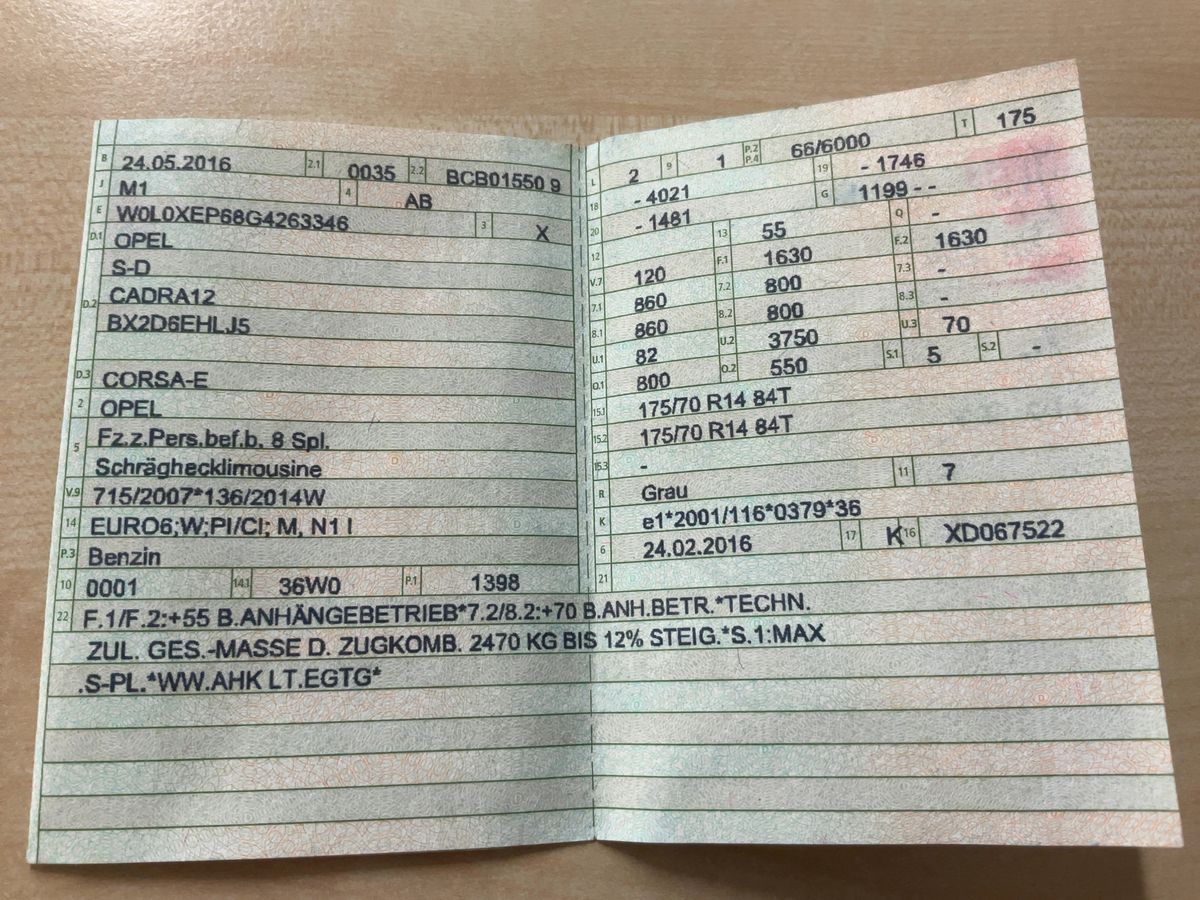 B 24.05.2016 2.1 0035 2.2 BCB01550 9
J M1 4 AB
E W0L0XEP68G4263346 3 X
D.1 OPEL
D.2 S-D
CADRA12
BX2D6EHLJ5
D.3 CORSA-E
2 OPEL
5 Fz.z.Pers.bef.b. 8 Spl.
Schräghecklimousine
V.9 715/2007*136/2014W
14 EURO6;W;PI/CI; M, N1 I
P.3 Benzin
10 0001 14.1 36W0 P.1 1398
L 2 9 1 P.2 P.4 66/6000 T 175
18 - 4021 19 - 1746
20 - 1481 G 1199 - -
12 13 55 Q -
V.7 120 F.1 1630 F.2 1630
7.1 860 7.2 800 7.3 -
8.1 860 8.2 800 8.3 -
U.1 82 U.2 3750 U.3 70
O.1 800 O.2 550 S.1 5 S.2 -
15.1 175/70 R14 84T
15.2 175/70 R14 84T
15.3 -
R Grau 11 7
K e1*2001/116*0379*36
6 24.02.2016 17 K 16 XD067522
21
22 F.1/F.2:+55 B.ANHÄNGEBETRIEB*7.2/8.2:+70 B.ANH.BETR.*TECHN.
ZUL. GES.-MASSE D. ZUGKOMB. 2470 KG BIS 12% STEIG.*S.1:MAX
.S-PL.*WW.AHK LT.EGTG*